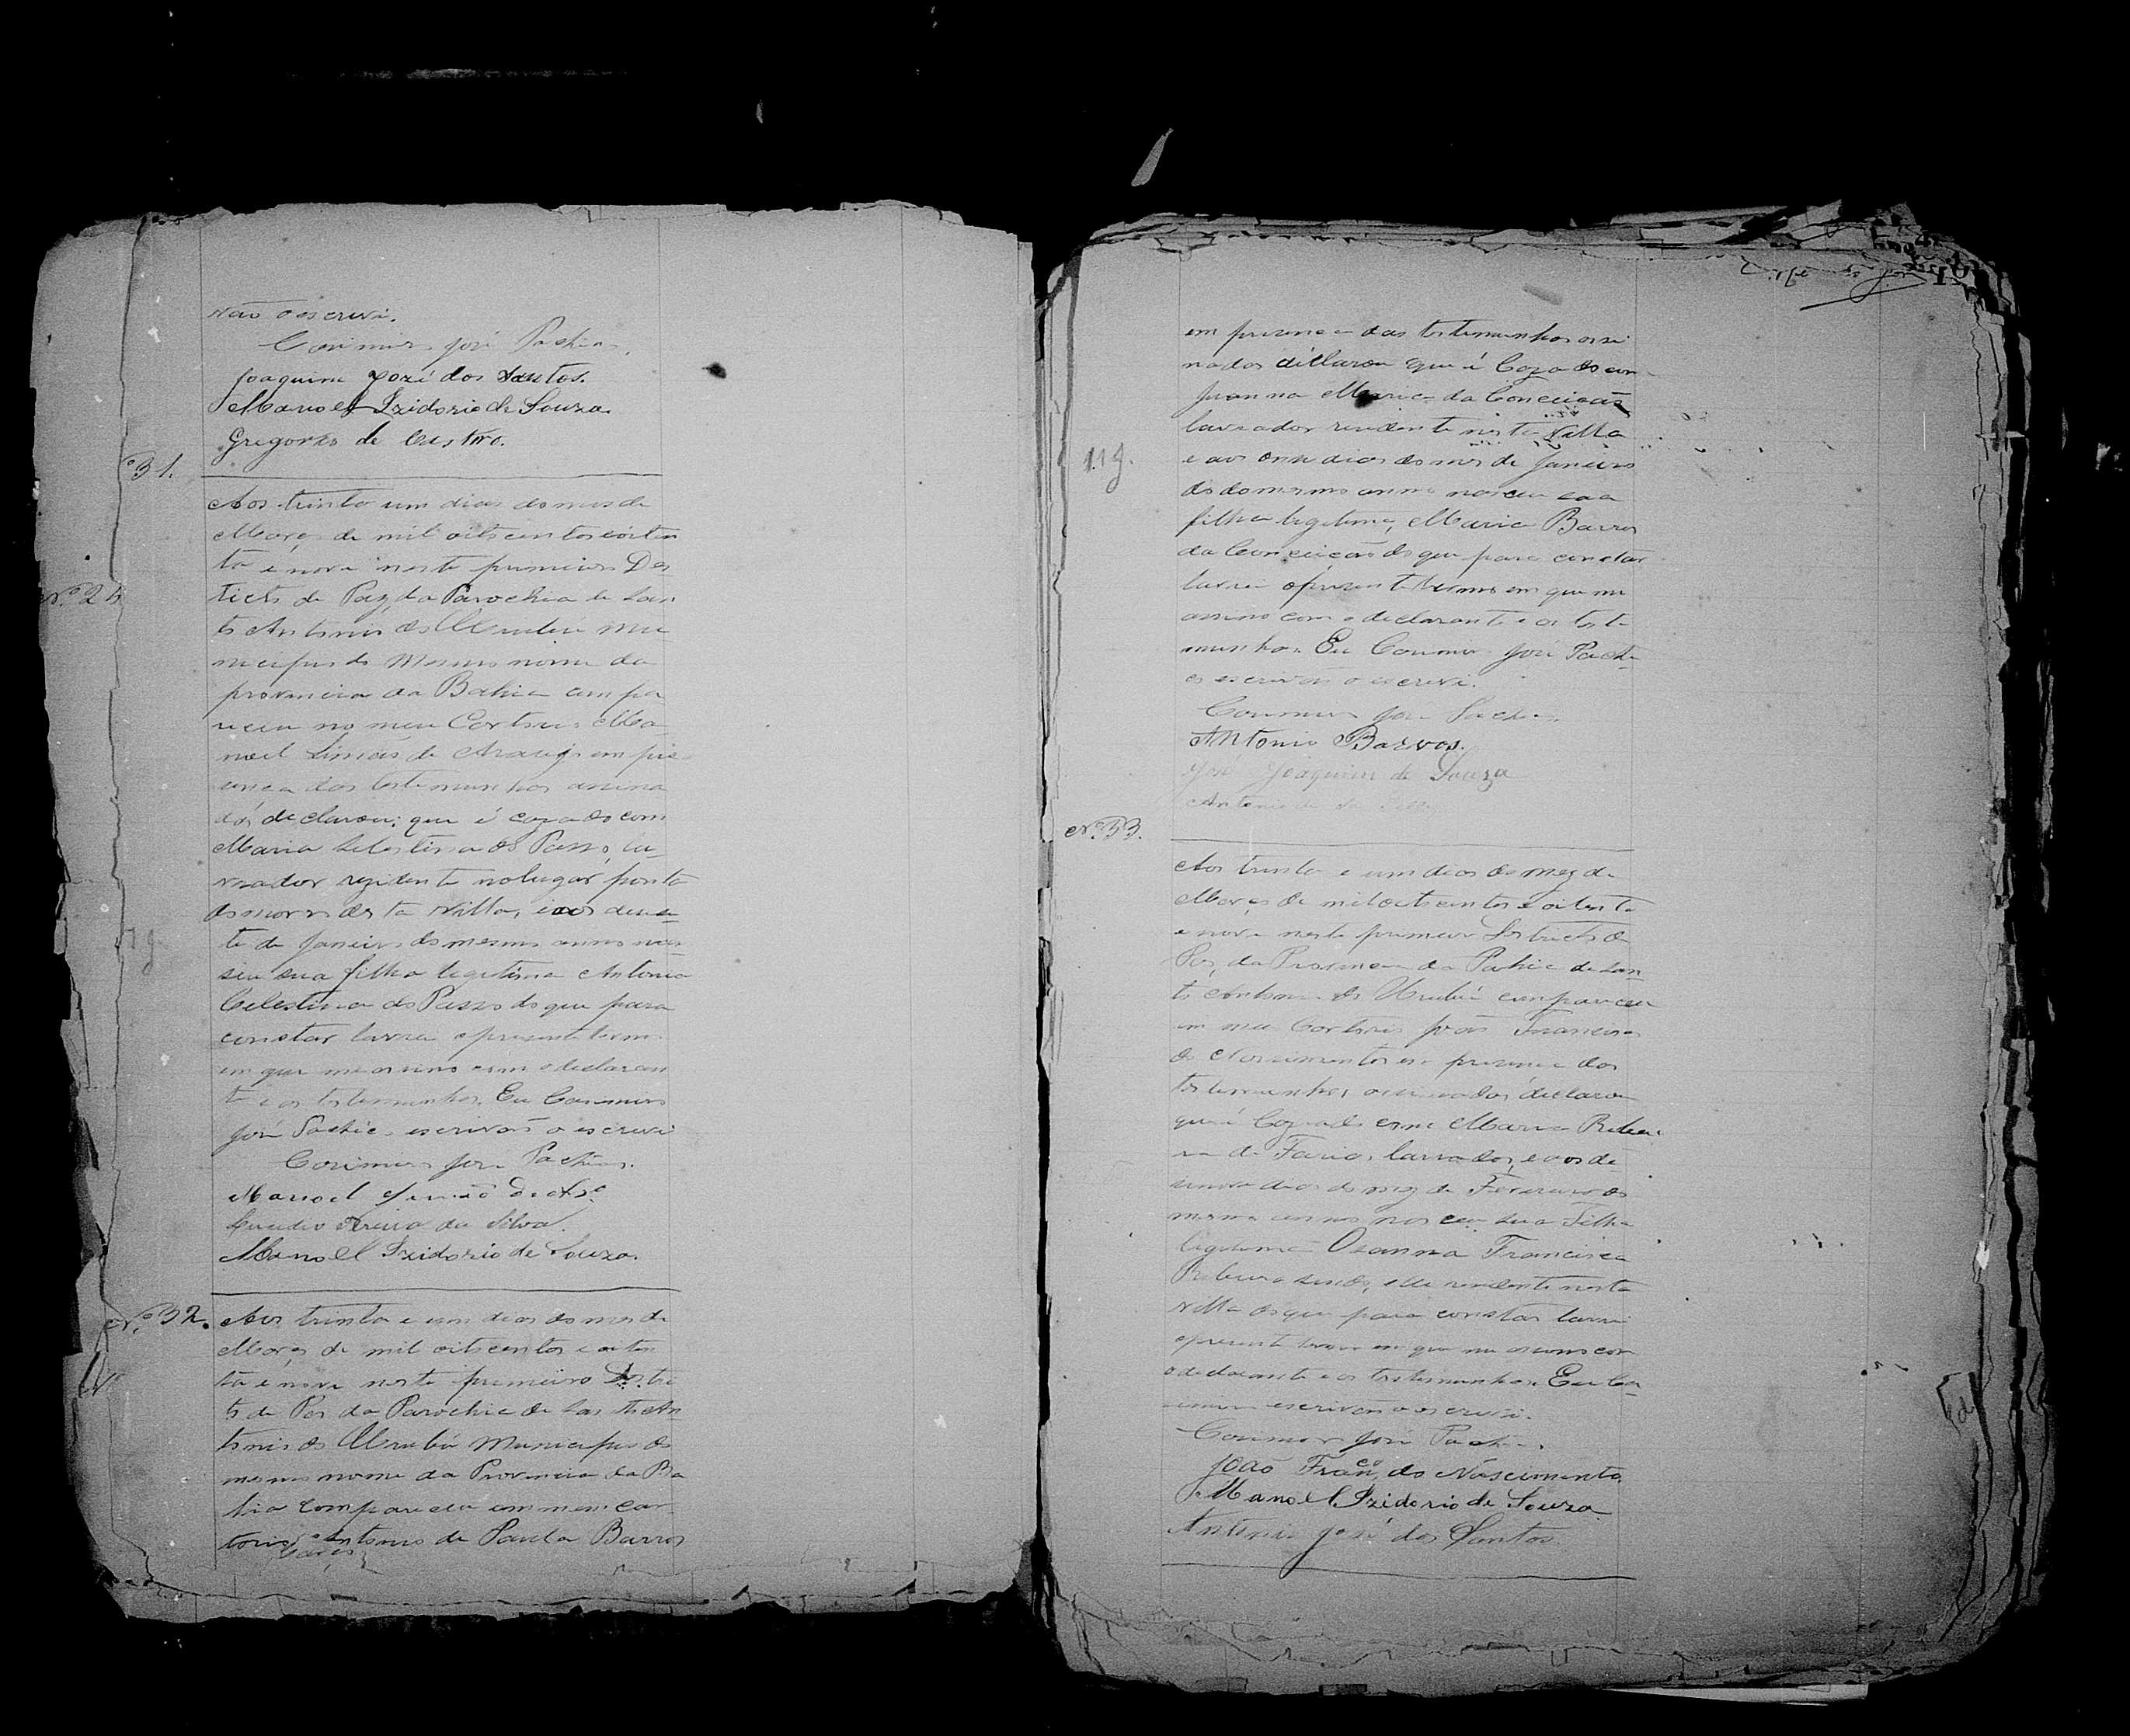 vão o escrevi.
Casimiro José Pachia
Joaquim José dos Santos.
Manoel Izidorio de Souza.
Gregorio de Castro.
31.
Aos trinta um dias do mes de
Março de mil oitocentos e oiten
ta e nove neste primeiro Des
tricto de Paz da Parochia de San
to Antonio do Urubu mu
nicipio do mesmo nome da
provincia da Bahia compa
receu no meu Cartorio Ma
noel Simião de Araujo em pre
sença das testemunhas assina
das declarou que é cazado com
Maria Selestina do Passo, la
vrador rezidente no lugar ponta
do morro desta Villa, e aos
te de Janeiro do mesmo anno nas
seu sua filha legitima Antonia
Celestina do Passo do que para
constar lavrei o presente termo
em que me assino com o declaran
te e as testemunhas. Eu Casimiro
José Pachia escrivão o escrevi
Casimiro José Pachia.
Manoel Simião de Arº
da Silva.
Manoel Izidorio de Souza.
Nº 32.
Aos trinta e um dias do mes de
Março de mil oitocentos e oiten
ta e nove neste primeiro Destric
to de Pas da Parochia de Santo An
tonio do Urubú Municipio do
mesmo nome da Provincia da Ba
hia compareceu em meu car
torio Antonio de Paula Barros
em presença das testemunhas assi
nadas declarou que é Cazado com
Joanna Maria da Conceicão
lavrador rezidente nesta Villa
e aos onze dias do mes de Janeiro
do do mesmo anno nasceu sua
filha legitima, Maria Barros
da Conceicão do que para constar
lavrei o presente termo em que me
assino com o declarante e as teste
munhas. Eu Casimiro José Pachi
a escrivão o escrevi.
Casimiro José Pachia.
Antonio Barros.
José Joaquim de Souza
Antonio da
Nº 33.
Aos trinta e um dias do mez de
Março de mil oitocentos e oitenta
e nove neste primeiro Destricto de
Pas, da Provincia da Bahia de San
to Antonio do Urubú compareceu
em meu Cartorio João Francisco
do Nascimento em presença das
testemunhas assinadas declarou
que é Cazado com Maria Ribei
ra de Faria, lavrador, e aos de
zenove dias do mez de Fevereiro do
mesmo anno nasceu sua Filha
legitima Oanna Francisca
Ribeira sendo elle rezidente nesta
Villa do que para constar lavrei
o presente termo em que me assino com
o declarante e as testemunhas. Eu Ca
simiro escrivão o escrevi.
Casimiro José Pachia.
João Franco do Nascimento
Manoel Izidorio de Souza
Antonio José dos Santos